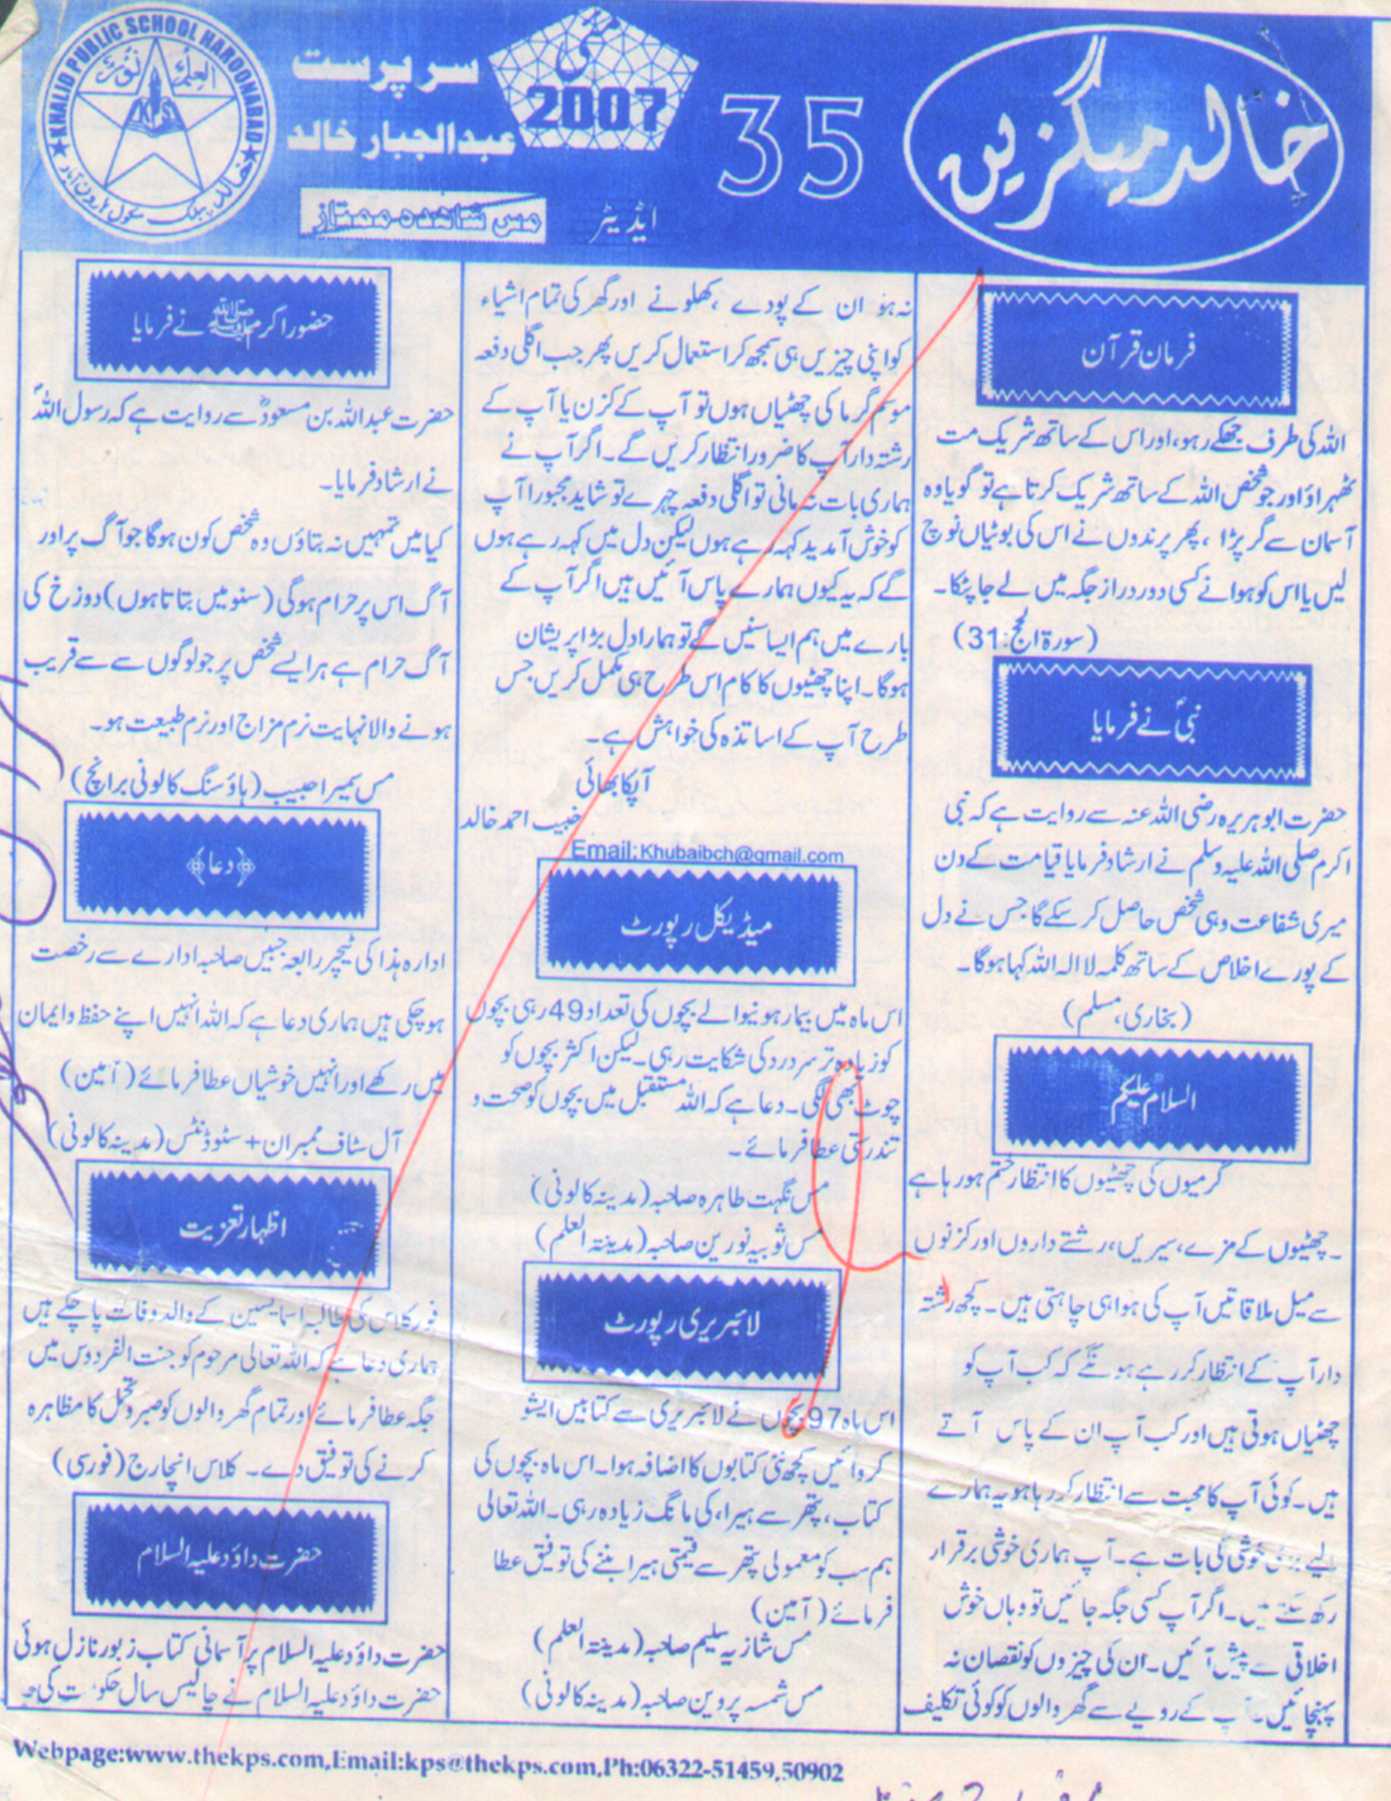 خالد میگزین
35
مئی
2007
سرپرست
عبدالجبار خالد
ایڈیٹر
مس شاہدہ ممتاز
KHALID PUBLIC SCHOOL HAROONABAD
العلم نور
خالد پبلک سکول ہارون آباد
فرمان قرآن
اللہ کی طرف جھکے رہو، اور اس کے ساتھ شریک مت
ٹھہراؤ اور جو شخص اللہ کے ساتھ شریک کرتا ہے تو گویا وہ
آسمان سے گر پڑا ، پھر پرندوں نے اس کی بوٹیاں نوچ
لیں یا اس کو ہوا نے کسی دور دراز جگہ میں لے جا پٹکا۔
(سورۃ الحج:31)
نبیؐ نے فرمایا
حضرت ابو ہریرہ رضی اللہ عنہ سے روایت ہے کہ نبی
اکرم صلی اللہ علیہ وسلم نے ارشاد فرمایا قیامت کے دن
میری شفاعت وہی شخص حاصل کر سکے گا جس نے دل
کے پورے اخلاص کے ساتھ کلمہ لا الہ اللہ کہا ہوگا۔
(بخاری، مسلم)
السلام علیکم
گرمیوں کی چھٹیوں کا انتظار ختم ہو رہا ہے
۔چھٹیوں کے مزے، سیریں، رشتے داروں اور کزنوں
سے میل ملاقاتیں آپ کی ہوا ہی چاہتی ہیں۔ کچھ رشتہ
دار آپ کے انتظار کر رہے ہونگے کہ کب آپ کو
چھٹیاں ہوتی ہیں اور کب آپ ان کے پاس آتے
ہیں۔ کوئی آپ کا محبت سے انتظار کر رہا ہو یہ ہمارے
لیے بڑی خوشی کی بات ہے۔ آپ ہماری خوشی برقرار
رکھ سکتے ہیں۔ اگر آپ کسی جگہ جائیں تو وہاں خوش
اخلاقی سے پیش آئیں۔ ان کی چیزوں کو نقصان نہ
پہنچائیں۔ آپ کے رویے سے گھر والوں کو کوئی تکلیف
نہ ہو ان کے پودے ،کھلونے اور گھر کی تمام اشیاء
کو اپنی چیزیں ہی سمجھ کر استعمال کریں پھر جب اگلی دفعہ
موسم گرما کی چھٹیاں ہوں تو آپ کے کزن یا آپ کے
رشتہ دار آپ کا ضرور انتظار کریں گے۔ اگر آپ نے
ہماری بات نہ مانی تو اگلی دفعہ چہرے تو شاید مجبورا آپ
کو خوش آمدید کہہ رہے ہوں لیکن دل میں کہہ رہے ہوں
گے کہ یہ کیوں ہمارے پاس آئیں ہیں اگر آپ کے
بارے میں ہم ایسا سنیں گے تو ہمارا دل بڑا پریشان
ہوگا۔ اپنا چھٹیوں کا کام اس طرح ہی مکمل کریں جس
طرح آپ کے اساتذہ کی خواہش ہے۔
آپکا بھائی
خبیب احمد خالد
Email: Khubaibch@gmail.com
میڈیکل رپورٹ
اس ماہ میں بیمار ہونیوالے بچوں کی تعداد 49 رہی بچوں
کو زیادہ تر سر درد کی شکایت رہی۔ لیکن اکثر بچوں کو
چوٹ بھی لگی۔ دعا ہے کہ اللہ مستقبل میں بچوں کو صحت و
تندرستی عطا فرمائے۔
مس نگہت طاہرہ صاحبہ (مدینہ کالونی)
مس ثوبیہ نورین صاحبہ (مدینتہ العلم)
لائبریری رپورٹ
اس ماہ 97 بچوں نے لائبریری سے کتابیں ایشو
کروائیں کچھ نئی کتابوں کا اضافہ ہوا۔ اس ماہ بچوں کی
کتاب، پتھر سے ہیرا، کی مانگ زیادہ رہی۔ اللہ تعالی
ہم سب کو معمولی پتھر سے قیمتی ہیرا بننے کی توفیق عطا
فرمائے (آمین)
مس شازیہ سلیم صاحبہ (مدینتہ العلم)
مس شمسہ پروین صاحبہ (مدینہ کالونی)
حضور اکرم ﷺ نے فرمایا
حضرت عبداللہ بن مسعودؓ سے روایت ہے کہ رسول اللہؐ
نے ارشاد فرمایا۔
کیا میں تمہیں نہ بتاؤں وہ شخص کون ہوگا جو آگ پر اور
آگ اس پر حرام ہوگی (سنو میں بتاتا ہوں) دوزخ کی
آگ حرام ہے ہر ایسے شخص پر جو لوگوں سے سے قریب
ہونے والا نہایت نرم مزاج اور نرم طبیعت ہو۔
مس سمیرا حبیب (ہاؤسنگ کالونی برانچ)
﴿دعا﴾
ادارہ ہذا کی ٹیچر رابعہ جبیں صاحبہ ادارے سے رخصت
ہو چکی ہیں ہماری دعا ہے کہ اللہ انہیں اپنے حفظ و ایمان
میں رکھے اور انہیں خوشیاں عطا فرمائے (آمین)
آل سٹاف ممبران + سٹوڈنٹس (مدینہ کالونی)
اظہار تعزیت
فور کلاس کی طالبہ اسما یٰسین کے والد وفات پا چکے ہیں
ہماری دعا ہے کہ اللہ تعالی مرحوم کو جنت الفردوس میں
جگہ عطا فرمائے اور تمام گھر والوں کو صبر و تحمل کا مظاہرہ
کرنے کی توفیق دے۔ کلاس انچارج (فورسی)
حضرت داؤد علیہ السلام
حضرت داؤد علیہ السلام پر آسمانی کتاب زبور نازل ہوئی
حضرت داؤد علیہ السلام نے چالیس سال حکومت کی۔
Webpage:www.thekps.com,Email:kps@thekps.com,Ph:06322-51459,50902